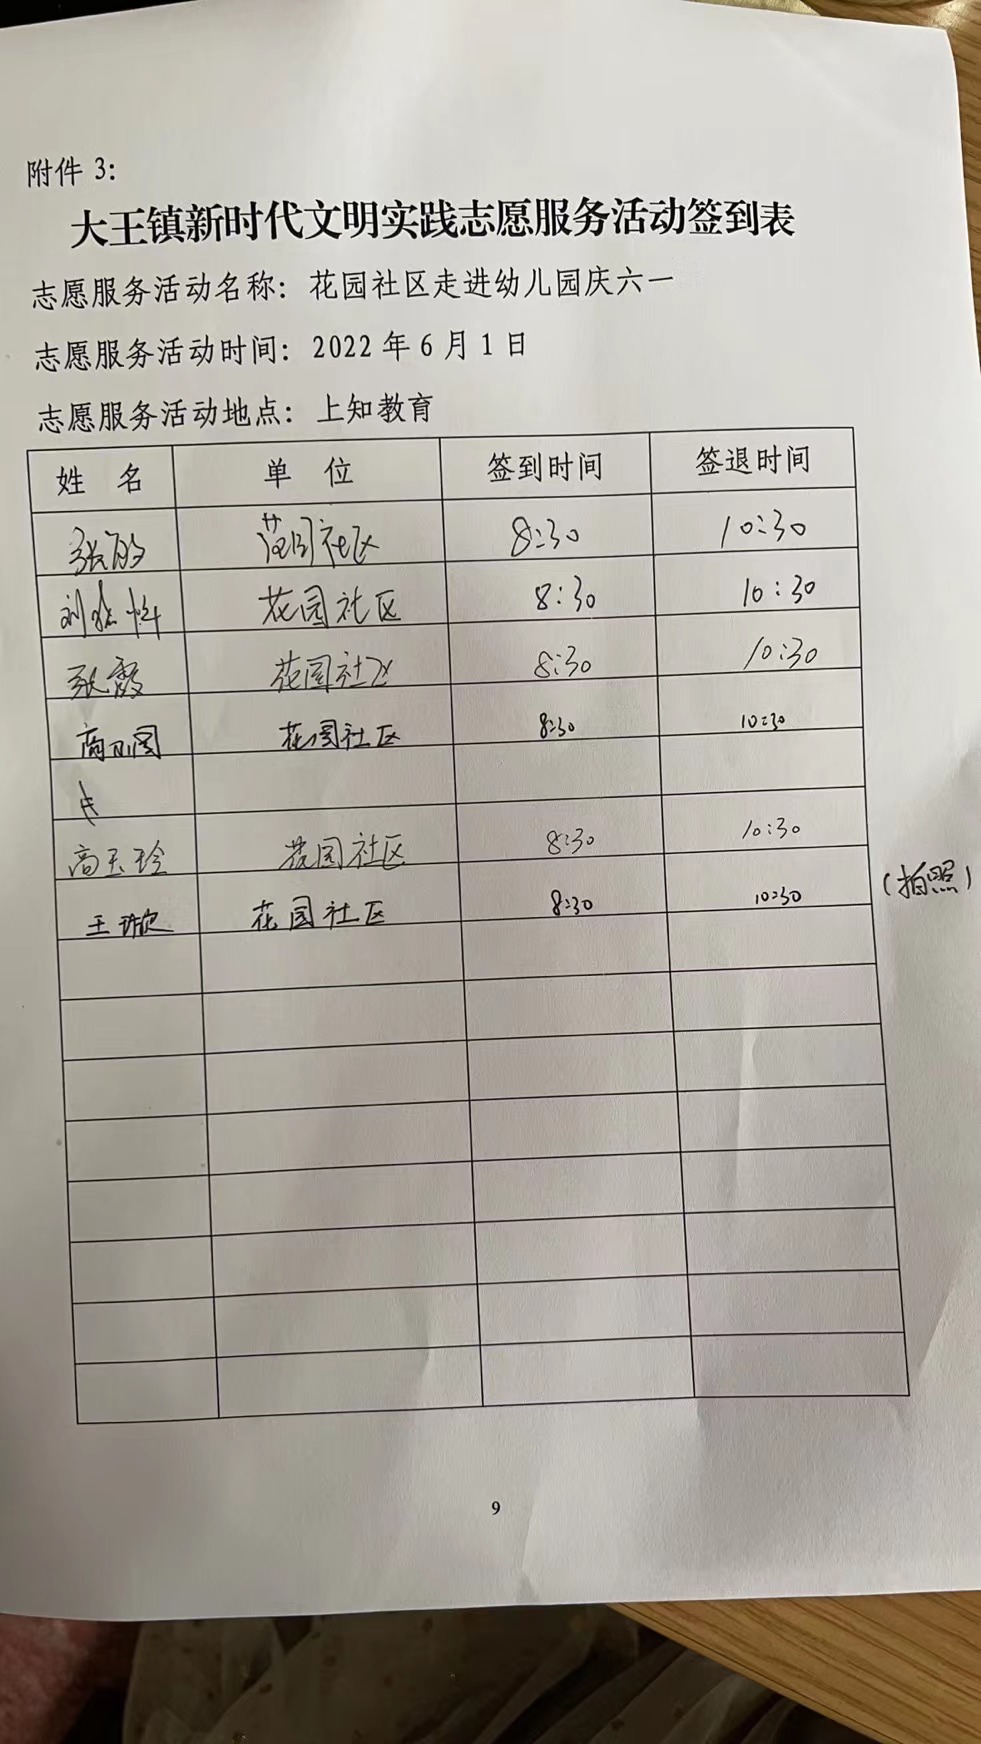 附件 3:
大王镇新时代文明实践志愿服务活动签到表
志愿服务活动名称: 花园社区走进幼儿园庆六一
志愿服务活动时间: 2022 年 6 月 1 日
志愿服务活动地点: 上知教育
姓 名 单 位 签到时间 签退时间
张 花园社区 8:30 10:30
刘 花园社区 8:30 10:30
张霞 花园社区 8:30 10:30
商 花园社区 8:30 10:30
高玉玲 花园社区 8:30 10:30
王 花园社区 8:30 10:30 (拍照)
9